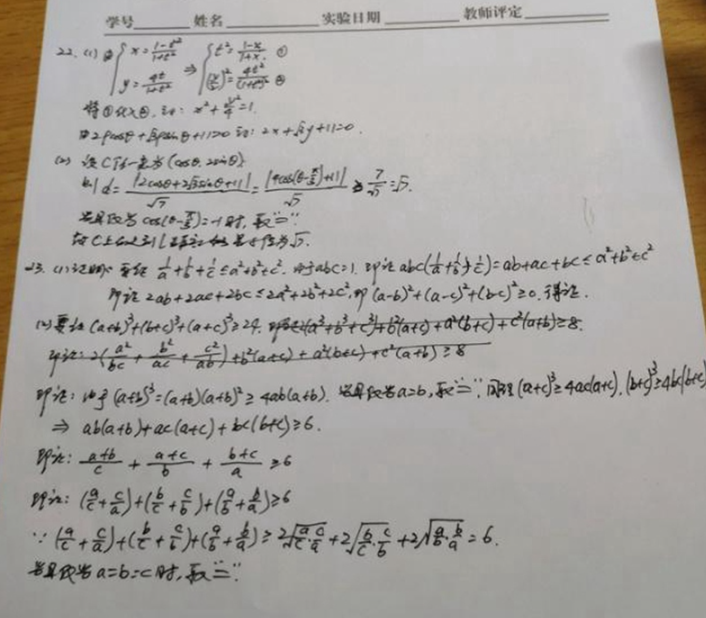 学号 姓名 实验日期 教师评定
22. (1) { x = (1-t²)/(1+t²) ⇒ { t² = (1-x)/(1+x) ①
y = 4t/(1+t²) (y/2)² = 4t²/(1+t²)² ②
将①代入②, 过: x² + y²/4 = 1.
2ρcosθ + √3ρsinθ + 11 = 0 过: 2x + √3y + 11 = 0.
(2) 设C任一点为 (cosθ, 2sinθ)
则 d = |2cosθ + 2√3sinθ + 11|/√7 = |4cos(θ - π/3) + 11|/√7 ≥ 7/√7 = √7.
当且仅当 cos(θ - π/3) = -1 时, 取"=".
故C上的点到l距离的最小值为√7.
23. (1) 证明: 要证 1/a + 1/b + 1/c ≤ a² + b² + c². 由于abc=1. 即证 abc(1/a + 1/b + 1/c) = ab + ac + bc ≤ a² + b² + c²
即证 2ab + 2ac + 2bc ≤ 2a² + 2b² + 2c², 即 (a-b)² + (a-c)² + (b-c)² ≥ 0. 得证.
(2) 要证 (a+b)³ + (b+c)³ + (a+c)³ ≥ 24. 即证(a³ + b³ + c³) + b²(a+c) + a²(b+c) + c²(a+b) ≥ 8.
即证: 2(a²/bc + b²/ac + c²/ab) + b²(a+c) + a²(b+c) + c²(a+b) ≥ 8
即证: 由于 (a+b)³ = (a+b)(a+b)² ≥ 4ab(a+b). 当且仅当a=b, 取"=". 同理 (a+c)³ ≥ 4ac(a+c), (b+c)³ ≥ 4bc(b+c)
⇒ ab(a+b) + ac(a+c) + bc(b+c) ≥ 6.
即证: (a+b)/c + (a+c)/b + (b+c)/a ≥ 6
即证: (a/c + c/a) + (b/c + c/b) + (a/b + b/a) ≥ 6
∵ (a/c + c/a) + (b/c + c/b) + (a/b + b/a) ≥ 2√(a/c·c/a) + 2√(b/c·c/b) + 2√(a/b·b/a) = 6.
当且仅当 a=b=c 时, 取"=".